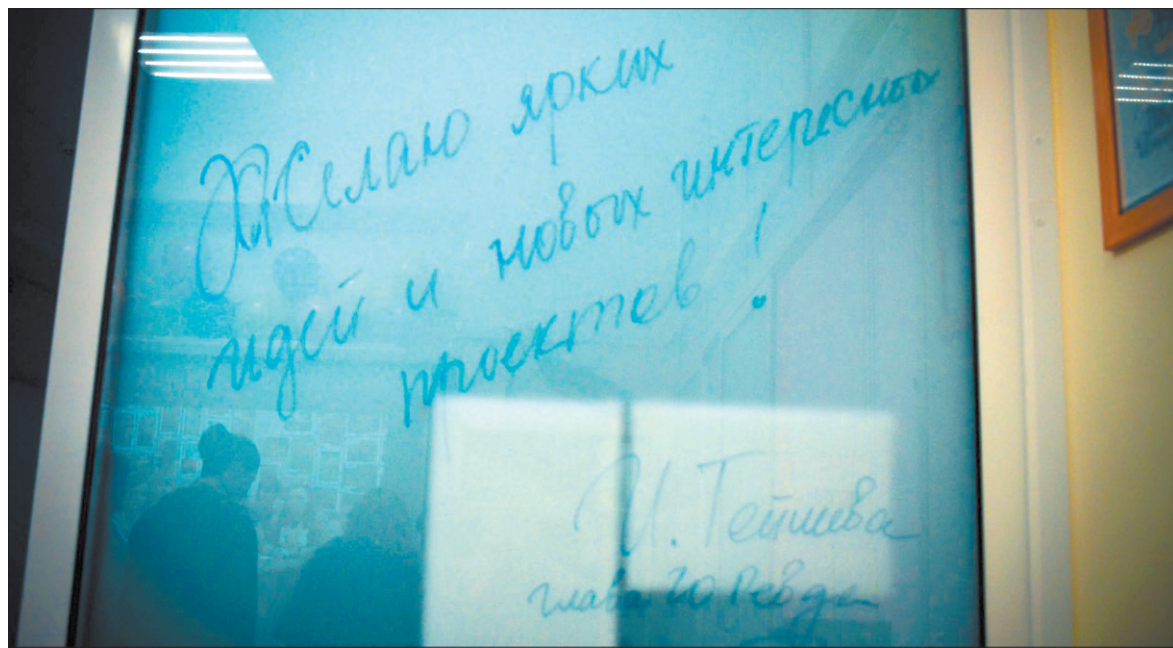 Желаю ярких
идей и новых интересных
проектов!
И. Тейшева
глава ГО Ревда